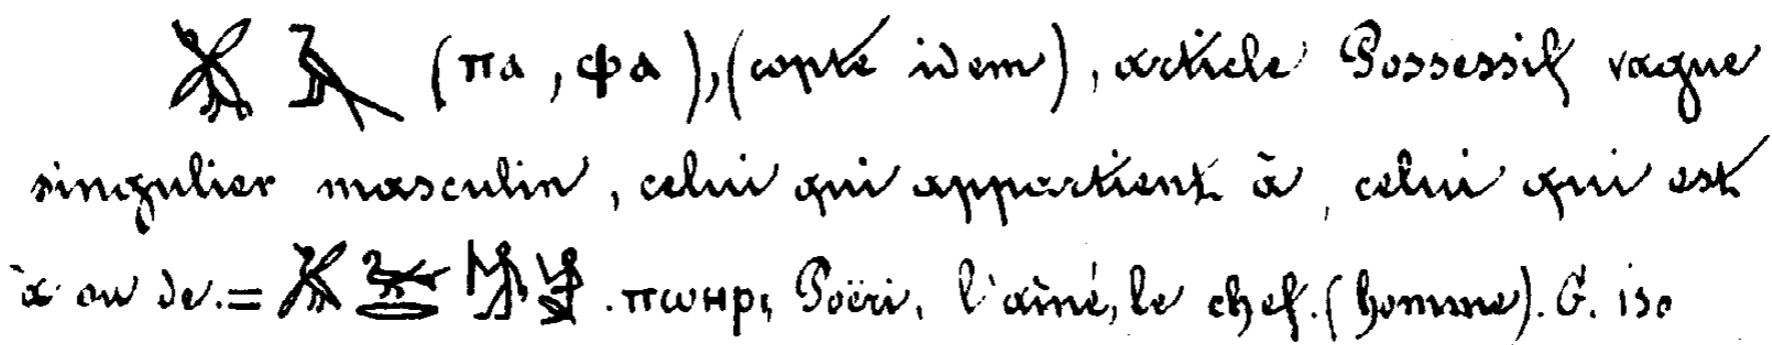 𓅮 𓄿 (ⲡⲁ, ⲫⲁ), (copte idem), article Possessif vague
singulier masculin, celui qui appartient à, celui qui est
à ou de. = .ⲡⲱⲏⲣ, Poëri, l'aîné, le chef. (homme). G. 130